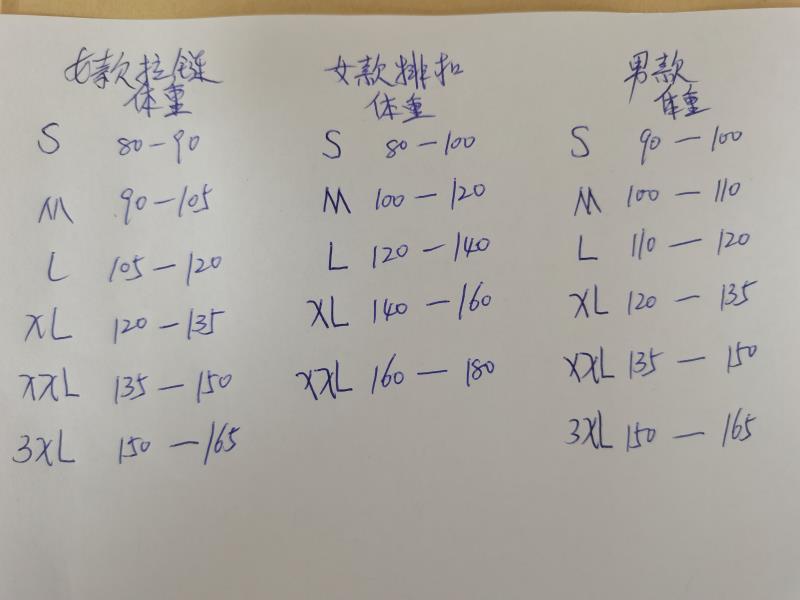 女款拉链
体重
S 80-90
M 90-105
L 105-120
XL 120-135
XXL 135-150
3XL 150-165
女款排扣
体重
S 80-100
M 100-120
L 120-140
XL 140-160
XXL 160-180
男款
体重
S 90-100
M 100-110
L 110-120
XL 120-135
XXL 135-150
3XL 150-165